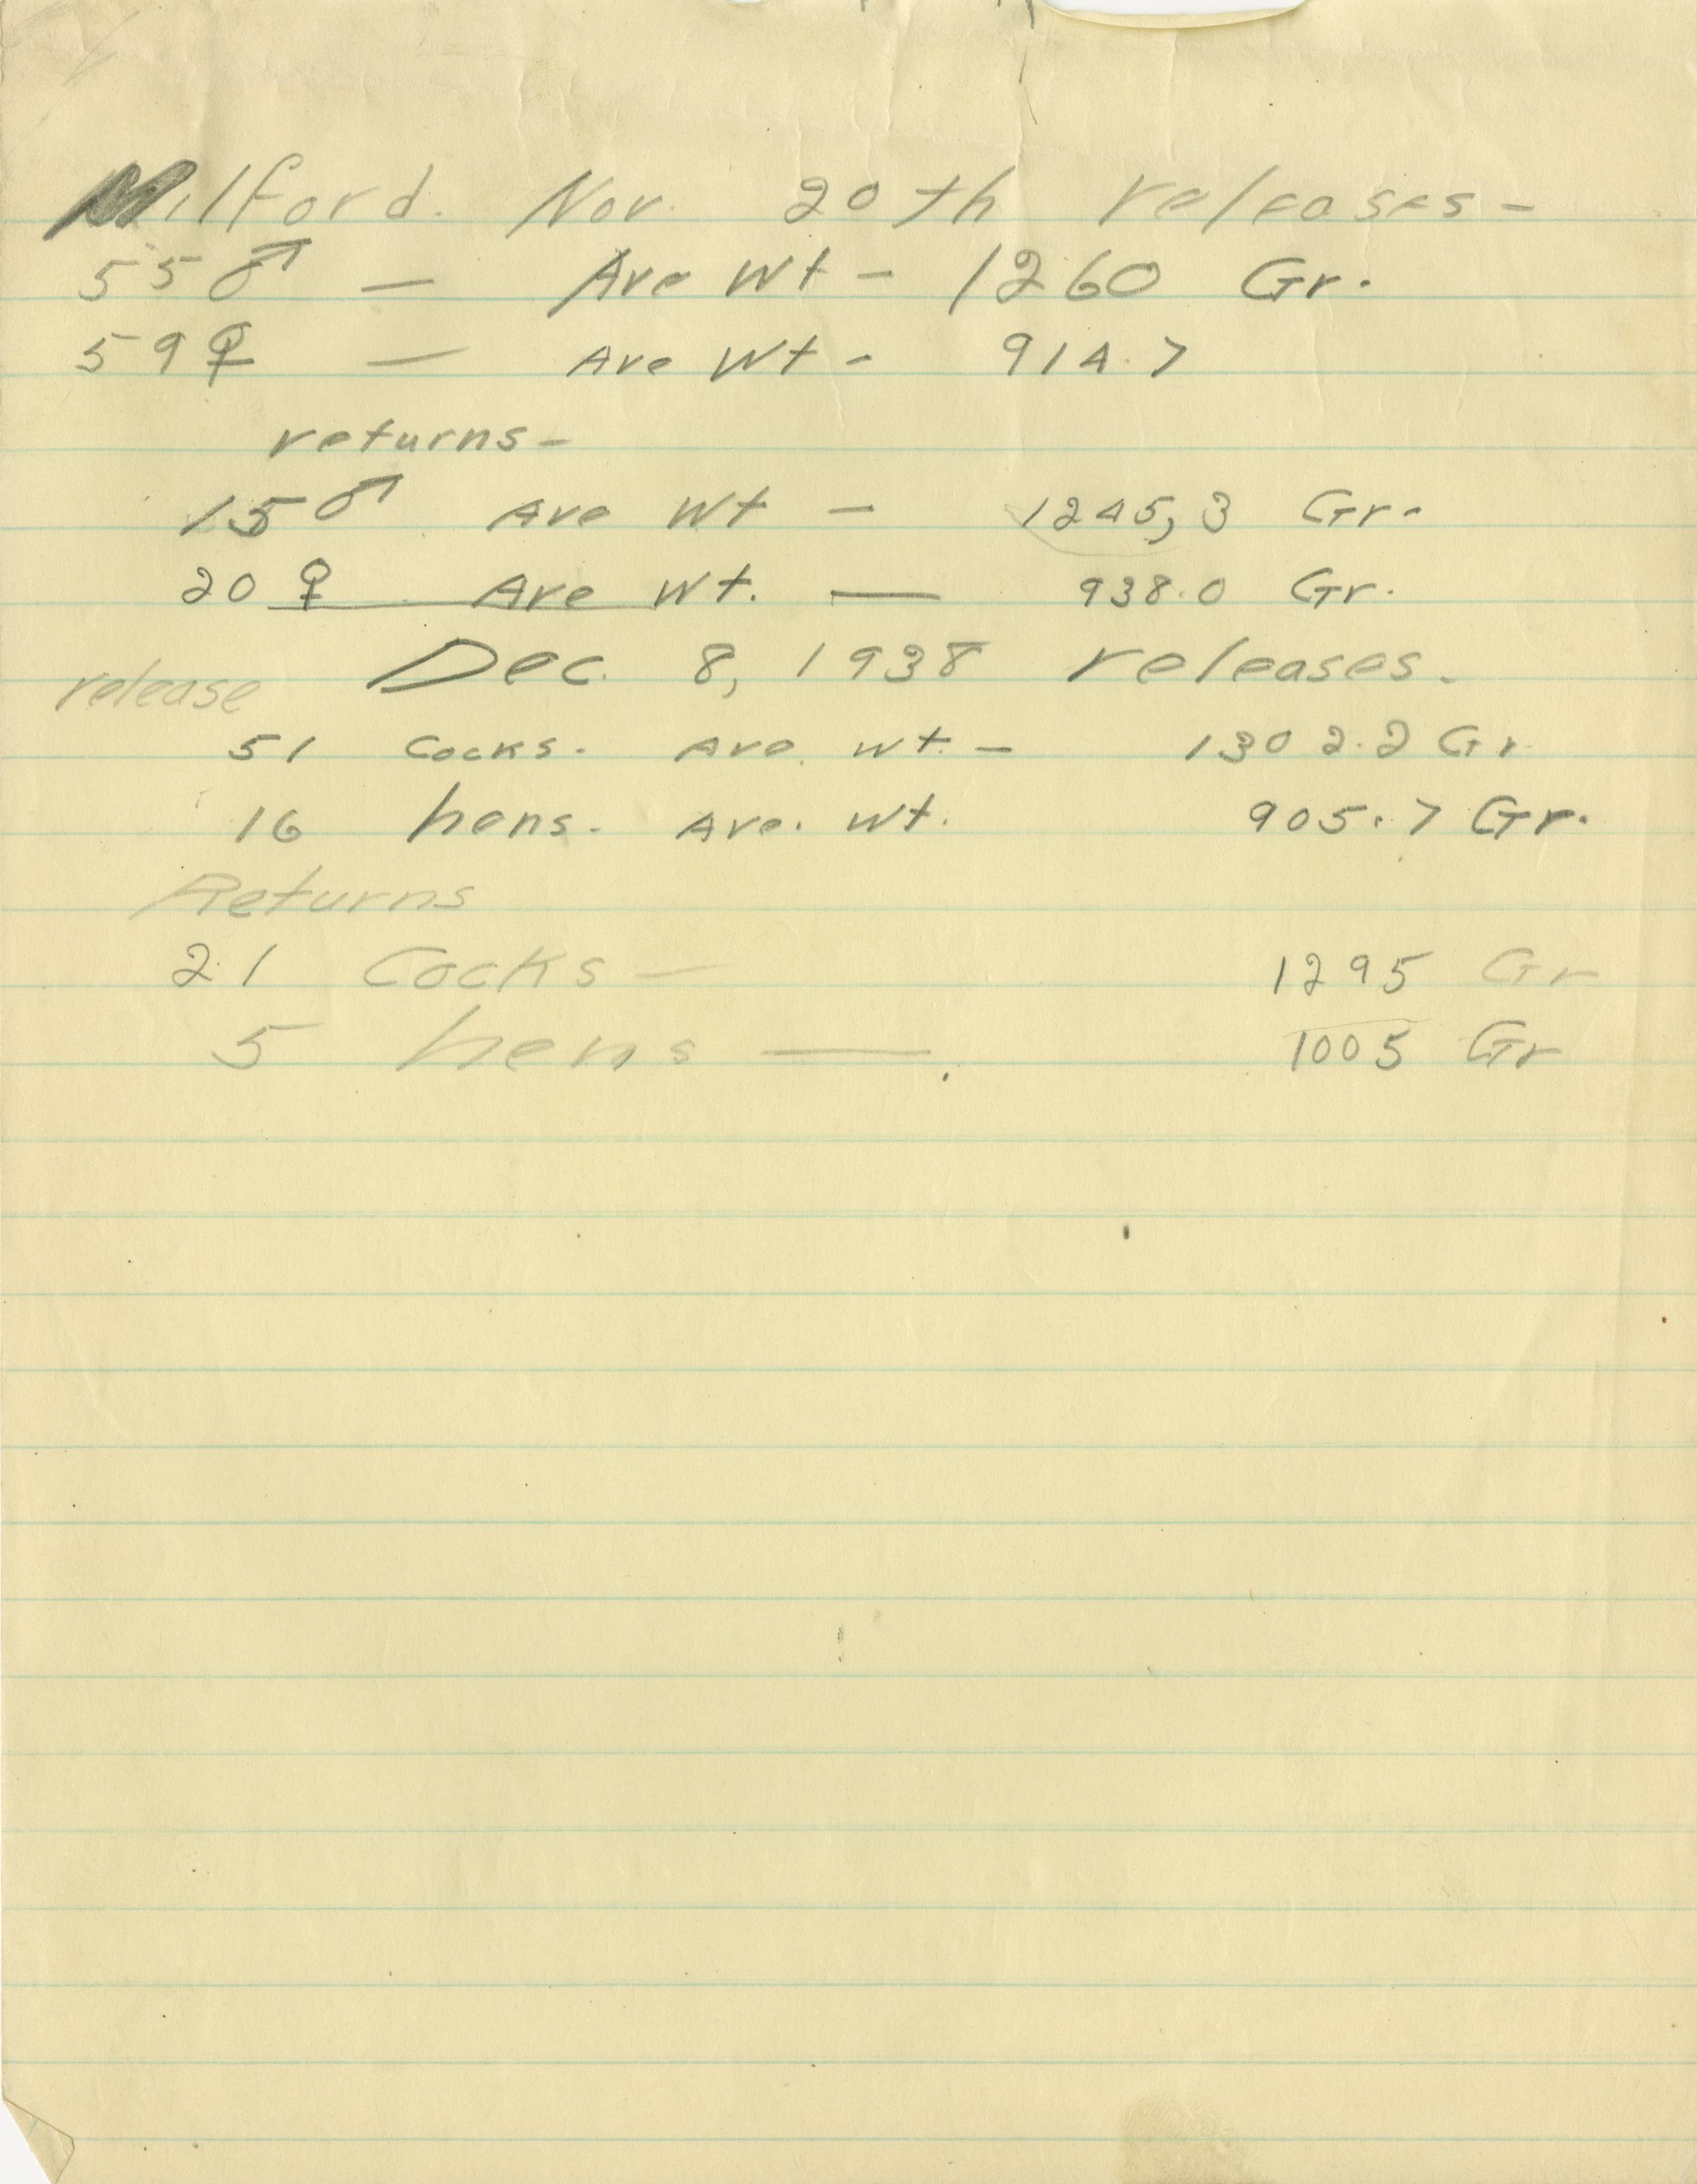 Milford. Nov. 20th releases-
55 ♂ — Ave Wt - 1260 Gr.
59 ♀ — Ave Wt - 914.7
returns-
15 ♂ Ave Wt — 1245,3 Gr.
20 ♀ Ave Wt. — 938.0 Gr.
Dec. 8, 1938 releases.
release
51 Cocks. Ave. wt. — 1302.2 Gr.
16 hens. Ave. Wt. 905.7 Gr.
Returns
21 Cocks — 1295 Gr
5 hens —. 1005 Gr